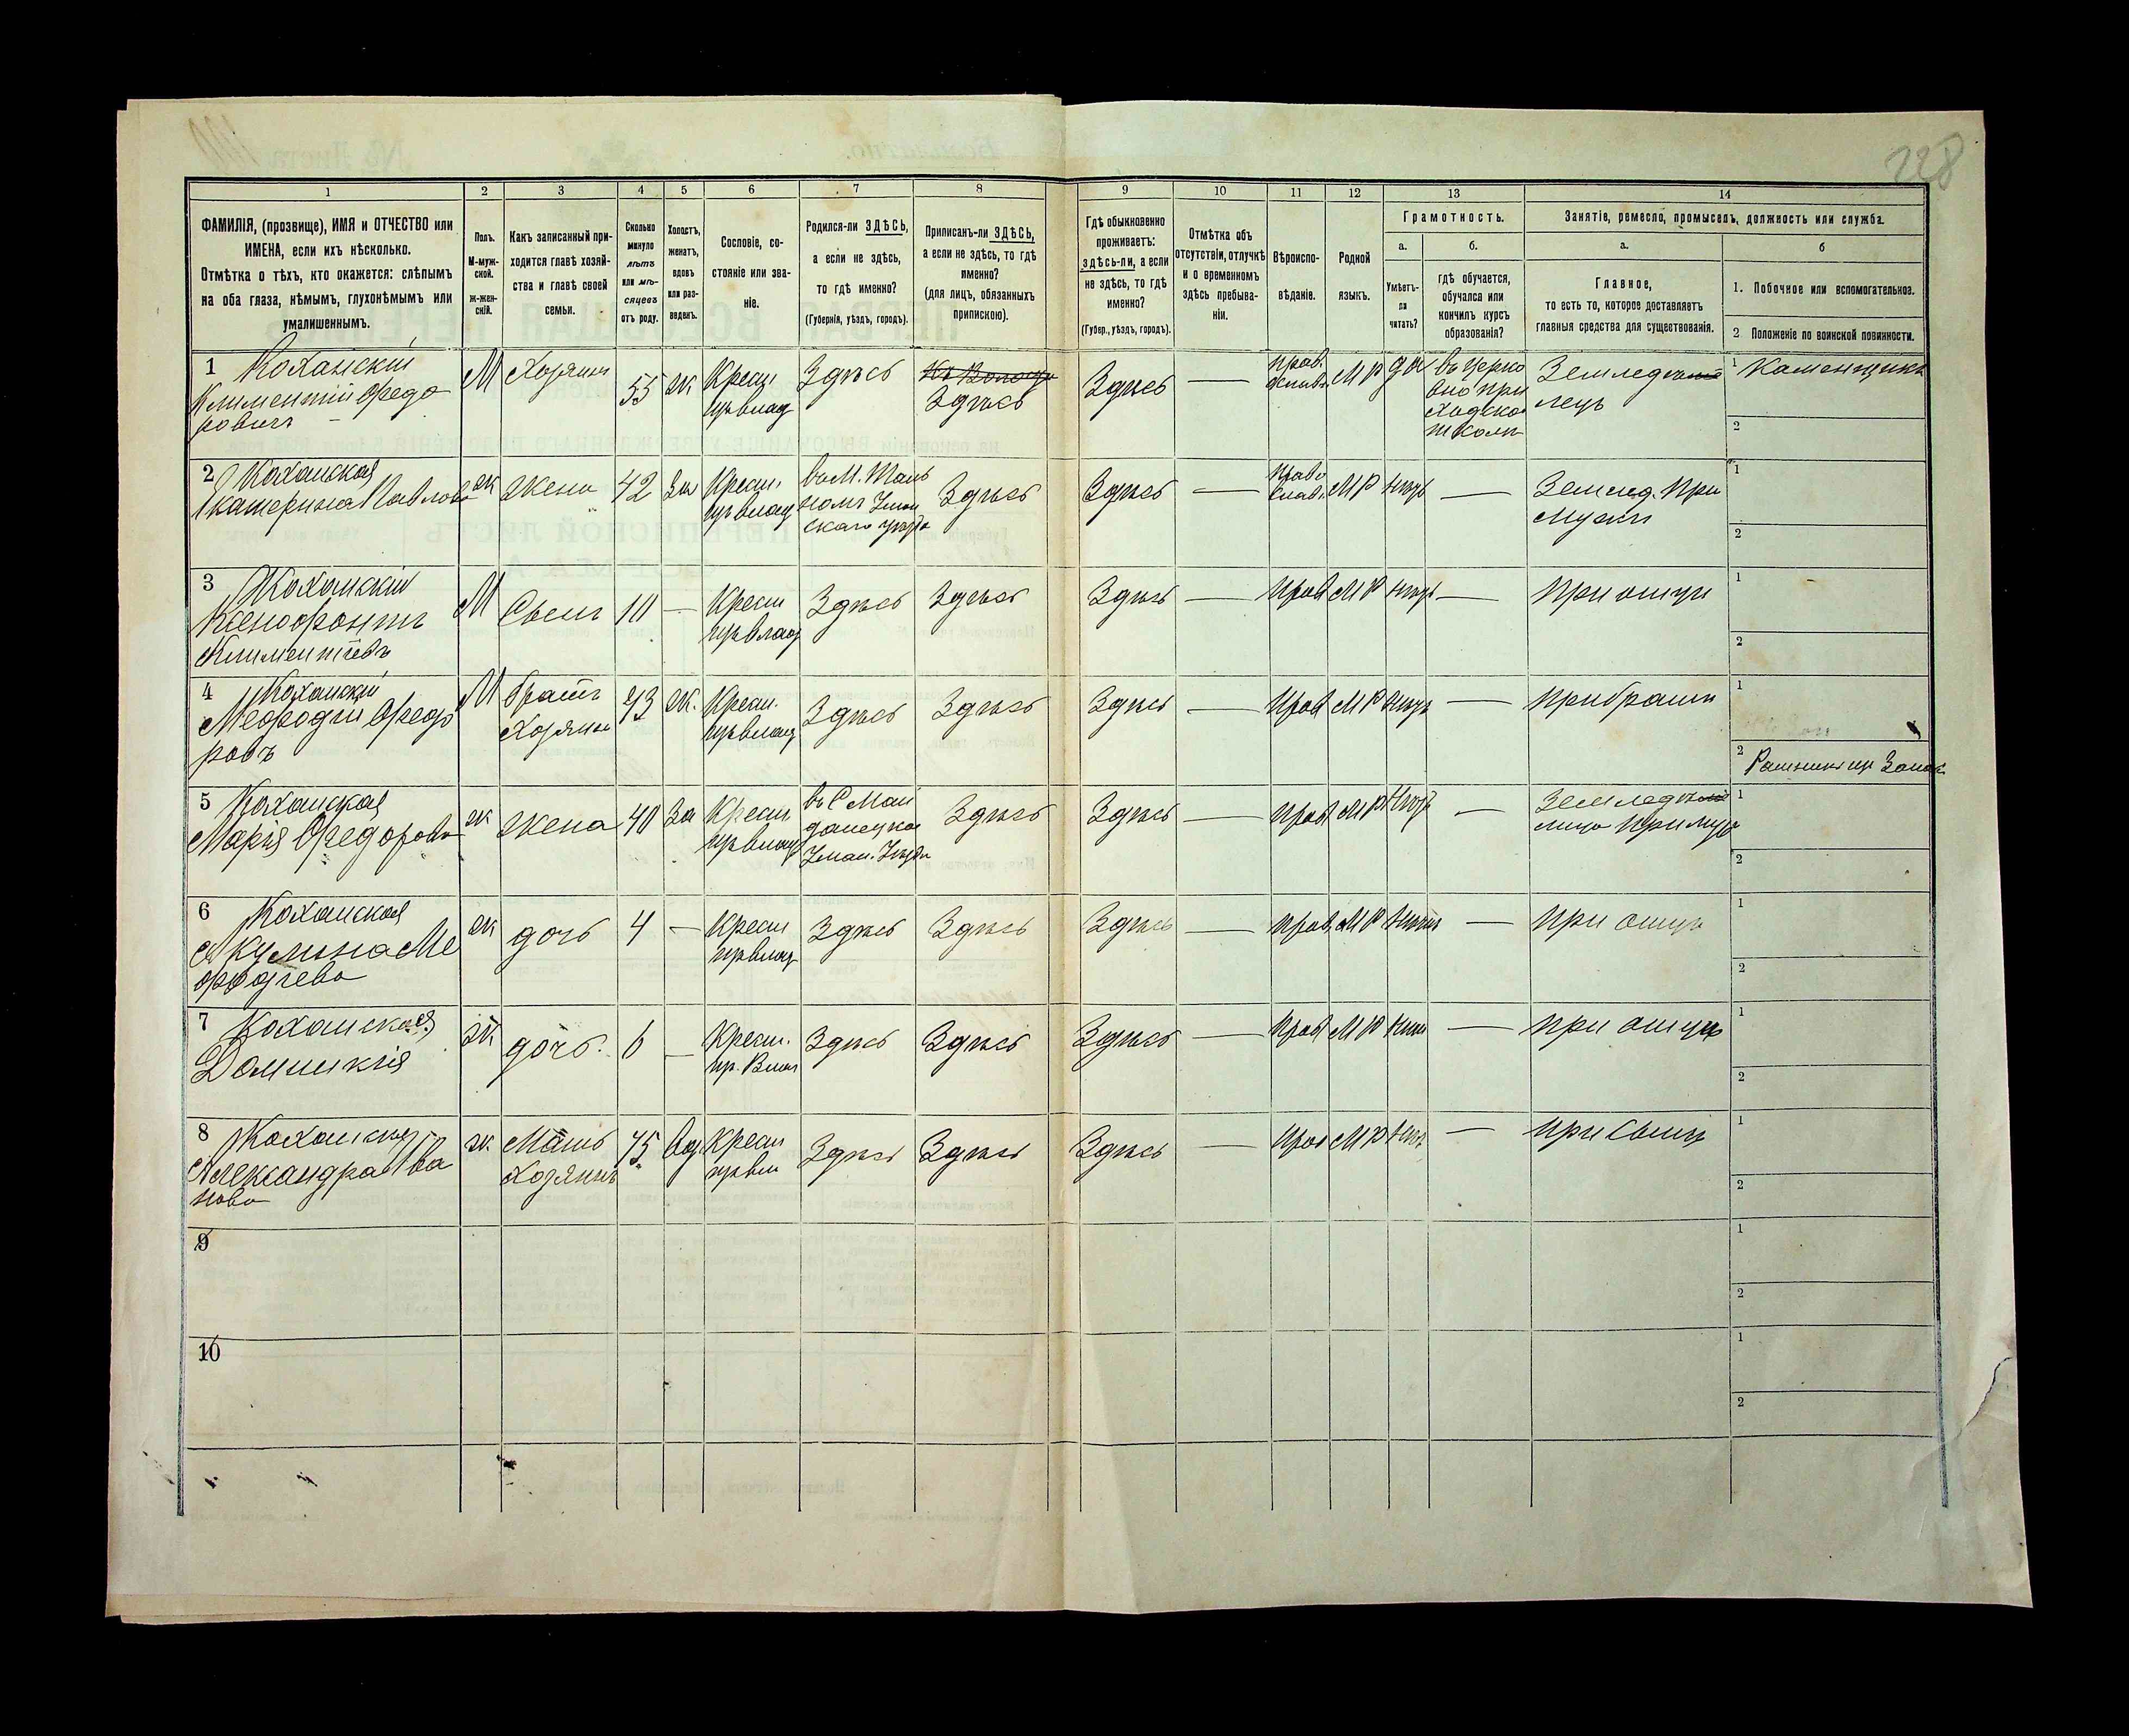 228
1 2 3 4 5 6 7 8 9 10 11 12 13 14
ФАМИЛІЯ, (прозвище), ИМЯ и ОТЧЕСТВО или
ИМЕНА, если ихъ нѣсколько.
Отмѣтка о тѣхъ, кто окажется: слѣпымъ
на оба глаза, нѣмымъ, глухонѣмымъ или
умалишеннымъ.
Полъ.
М-муж-
ской.
ж-жен-
скій.
Какъ записанный при-
ходится главѣ хозяй-
ства и главѣ своей
семьи.
Сколько
минуло
лѣтъ
или мѣ-
сяцевъ
отъ роду.
Холостъ,
женатъ,
вдовъ
или раз-
веденъ.
Сословіе, со-
стояніе или зва-
ніе.
Родился-ли ЗДѢСЬ,
а если не здѣсь,
то гдѣ именно?
(Губернія, уѣздъ, городъ).
Приписанъ-ли ЗДѢСЬ,
а если не здѣсь, то гдѣ
именно?
(для лицъ, обязанныхъ
припискою).
Гдѣ обыкновенно
проживаетъ:
здѣсь-ли, а если
не здѣсь, то гдѣ
именно?
(Губер., уѣздъ, городъ).
Отмѣтка объ
отсутствіи, отлучкѣ
и о временномъ
здѣсь пребыва-
ніи.
Вѣроиспо-
вѣданіе.
Родной
языкъ.
Грамотность.
а.
Умѣетъ-
ли
читать?
б.
гдѣ обучается,
обучался или
кончилъ курсъ
образованія?
Занятіе, ремесло, промыселъ, должность или служба.
а.
Главное,
то есть то, которое доставляетъ
главныя средства для существованія.
б
1. Побочное или вспомогательное.
2 Положеніе по воинской повинности.
1 Коханскій
Климентій Федо
ровичъ
М
Хозяинъ
55
ж
Крест.
Здѣсь
Здѣсь
Здѣсь
—
Прав.
М Р
да
въ Церко
вно при
ходской
школѣ
Земледѣ
лецъ
1 Каменщикъ
2
2 Коханская
Екатерина Павлова
ж
жена
42
За
Крест.
въ М. Таль
номъ Уман
скаго уѣзда
Здѣсь
Здѣсь
—
Право
слав.
М Р
нѣтъ
—
Землед. при
мужѣ
1
2
3 Коханскій
Ксенофонтъ
Климентіевъ
М
Сынъ
10
—
Крест
Здѣсь
Здѣсь
Здѣсь
—
Прав
М Р
нѣтъ
—
при отцѣ
1
2
4 Коханскій
Мефодій Федо
ровъ
М
братъ
Хозяина
43
ж.
Крест.
Здѣсь
Здѣсь
Здѣсь
—
Прав
М Р
нѣтъ
—
при братѣ
1
2
5 Коханская
Марія Федорова
ж
жена
40
За
Крест
въ С Май
данецко
Уман. Уѣзда
Здѣсь
Здѣсь
—
Прав
М Р
нѣтъ
—
1
2
6 Коханская
Акулина Ме
фодіева
ж
дочь
4
—
Крест
Здѣсь
Здѣсь
Здѣсь
—
Прав
М Р
нѣтъ
—
при отцѣ
1
2
7 Коханская
Домникія
ж
дочь
6
—
Крест.
Здѣсь
Здѣсь
Здѣсь
—
Прав
М Р
нѣтъ
—
при отцѣ
1
2
8
Александра Ива
нова
ж.
Мать
Хозяина
75
Вд.
Крест
Здѣсь
Здѣсь
Здѣсь
—
Прав
М Р
нѣтъ
—
при сынѣ
1
2
9
1
2
10
1
2